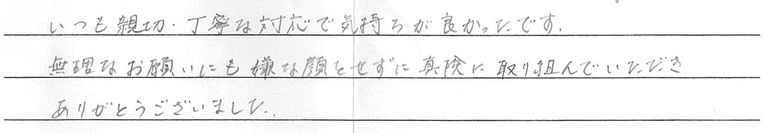 いつも親切・丁寧な対応で気持ちが良かったです.
無理なお願いにも嫌な顔をせずに真険に取り組んでいただき
ありがとうございました.